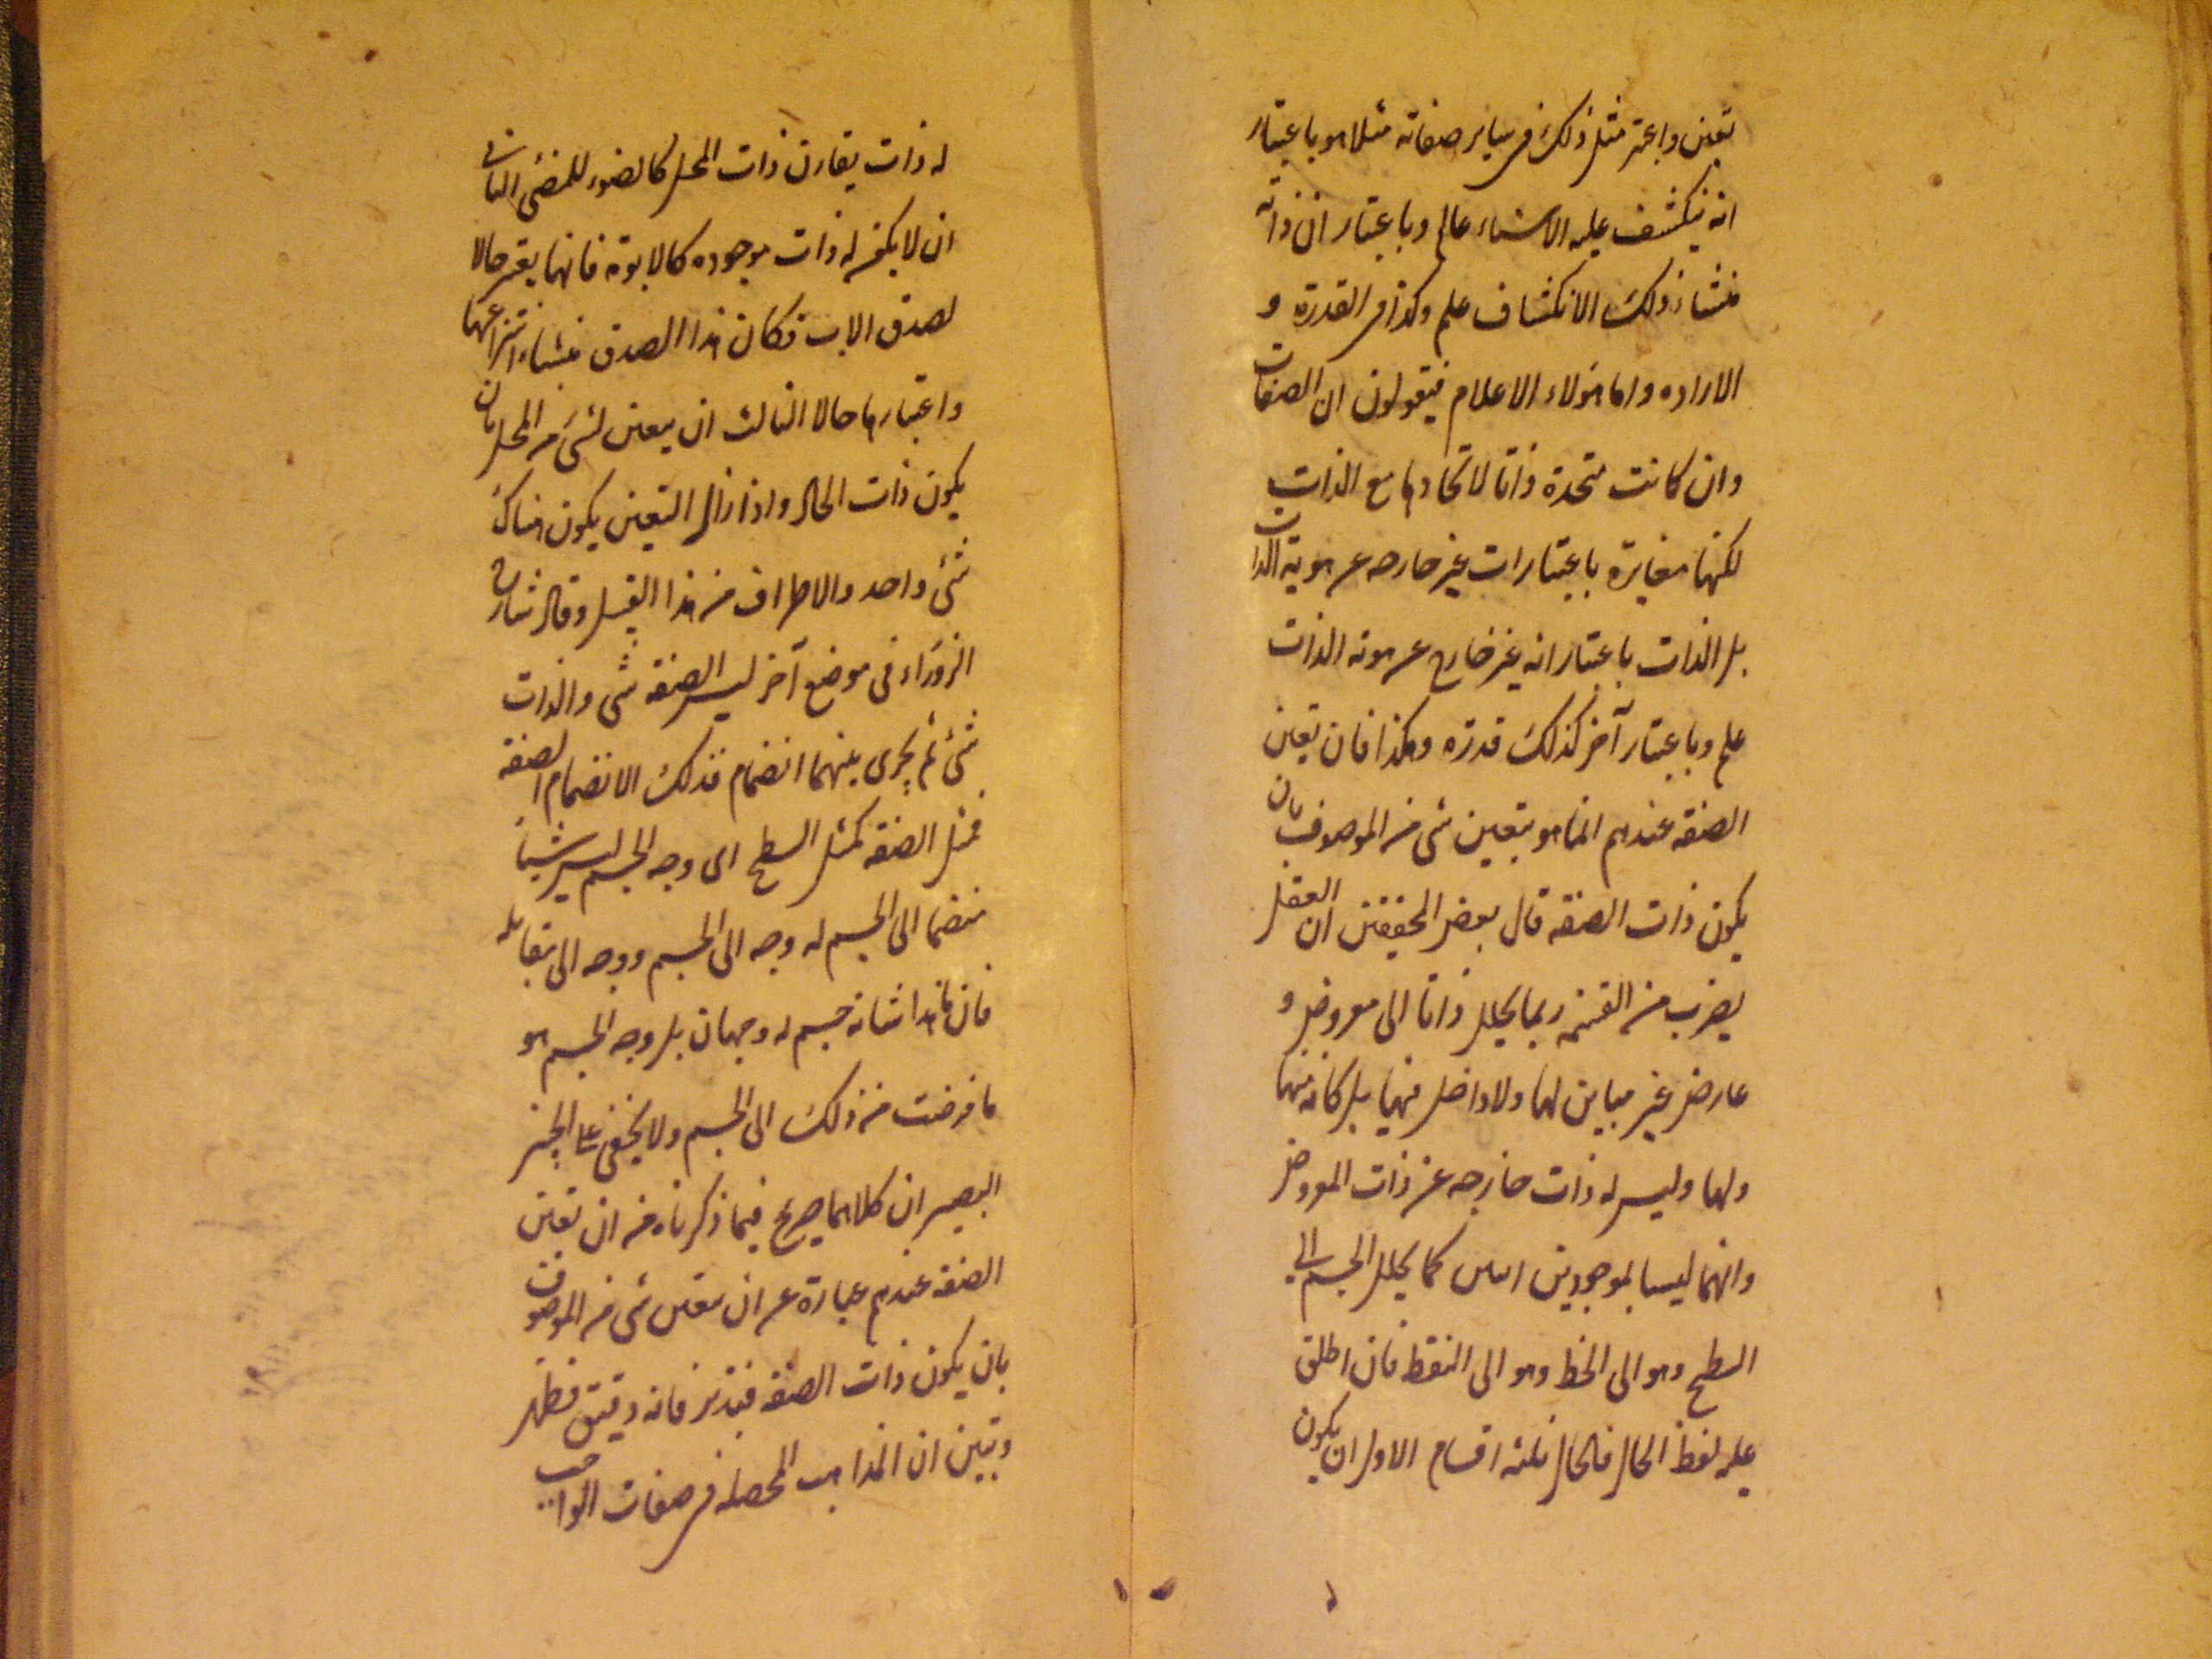 تعين واعتبر مثل ذلك فى ساير صفاته مثلا هو باعتبار
انه ينكشف عليه الاشياء عالم وباعتبار ان ذاته
منشاء ذلك الانكشاف علم وكذا فى القدرة و
الاراده واما هؤلاء الاعلام فيقولون ان الصفات
وان كانت متحدة ذاتا لاتحادها مع الذات
لكنها مغايرة باعتبارات غير خارجه عن هوية الذات
بل الذات باعتبار انه غير خارج عن هوية الذات
علم وباعتبار آخر كذلك قدرة وهكذا فان تعين
الصفه عندهم انما هو بتعين شى من الموصوف بان
يكون ذات الصفه قال بعض المحققين ان العقل
بضرب من القسمه ربما يحلل ذاتا الى معروض و
عارض غير مباين لها ولا داخل فيها بل كانه منها
ولها وليس له ذات خارجه عن ذات المعروض
وانهما ليسا بموجودين اثنين كما يحلل الجسم الى
السطح وهو الى الخط وهو الى النقط فان اطلق
عليه لفظ الحال فالحال ثلثه اقسام الاول ان يكون
له ذات يقارن ذات المحل كالضوء للمضئ الثانى
ان لا يكون له ذات موجوده كالابوة فانها يعتبر حالا
لصدق الاب فكان هذا الصدق منشاء انتزاعها
واعتبارها حالا الثالث ان يتعين لشئ من المحل بان
يكون ذات الحال واذا زال التعين يكون هناك
شئ واحد والاطراف من هذا القبيل وقال شارح
الزوراء فى موضع آخر ليس الصفه شى والذات
شئ ثم يجرى بينهما انضمام فذلك الانضمام الصفه
فمثل الصفه كمثل السطح اى وجه الجسم ليس شيئا
منضما الى الجسم له وجه الى الجسم ووجه الى مقابله
فان ما هذا شانه جسم له وجهان بل وجه الجسم هو
ما فرضت من ذلك الى الجسم ولا يخفى على الخبير
البصير ان كلامهما صريح فيما ذكرناه من ان تعين
الصفه عندهم عبارة عن ان يتعين شى من الموصوف
بان يكون ذات الصفه فتدبر فانه دقيق فظهر
وتبين ان المذاهب المحصله فى صفات الواجب